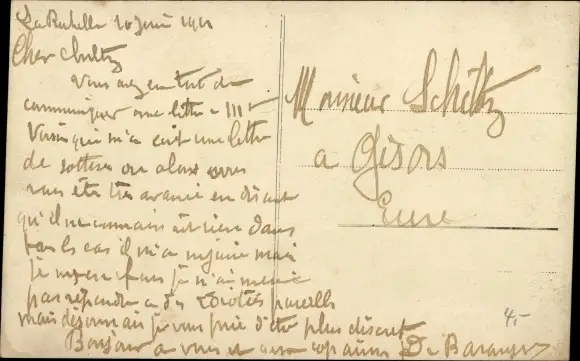 La Rochelle 10 Juin 1911
Cher Schultz
Vous avez eu tort de
communiquer une lettre a Mr
Voisin qui m'a écrit une lettre
de sottises ou alors vous
vous êtes très avancé en disant
qu'il ne connais rien dans
tous les cas il m'a injurié mais
je m'en fous je n'ai même
pas répondu a des idioties pareilles
mais désormais je vous prie d'être plus discret
Bonjour a vous et aux copains De Baranger
Monsieur Schiltz
a Gisors
Eure
4,-